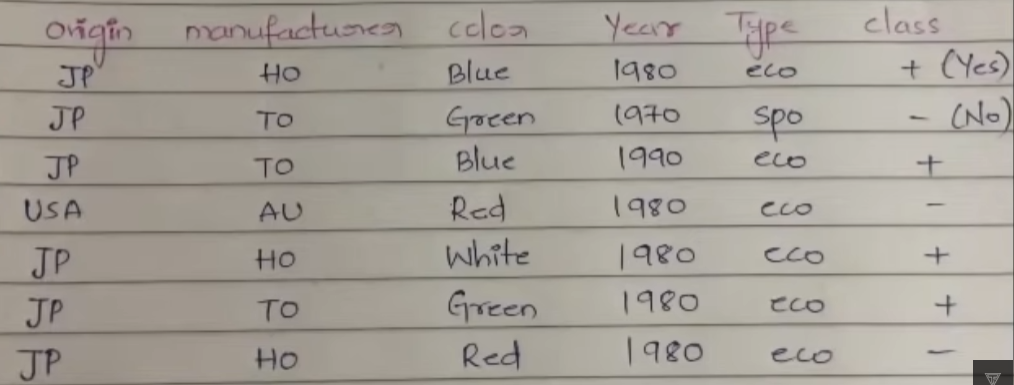 Origin manufacturer color Year Type class
JP HO Blue 1980 eco + (Yes)
JP TO Green 1970 spo - (No)
JP TO Blue 1990 eco +
USA AU Red 1980 eco -
JP HO White 1980 eco +
JP TO Green 1980 eco +
JP HO Red 1980 eco -